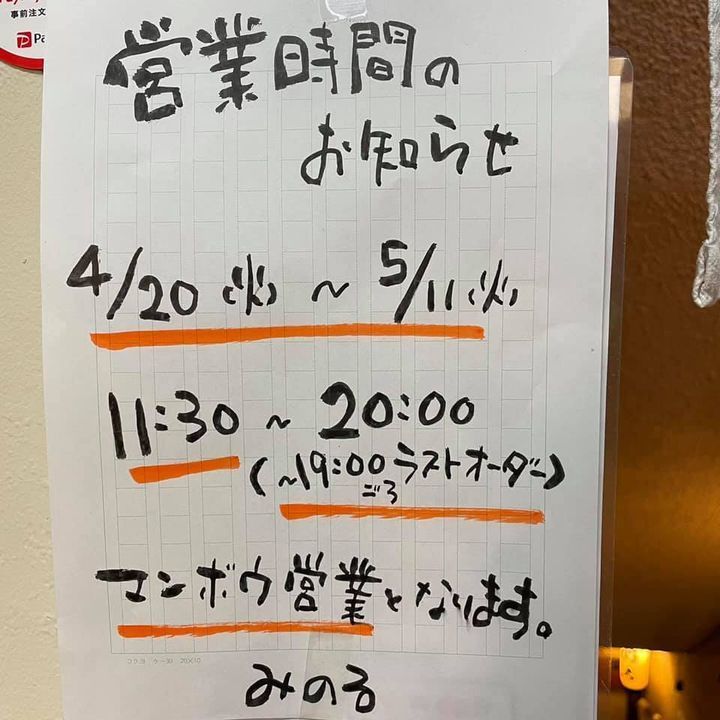 事前注文
Pa
営業時間の
お知らせ
4/20(火)～5/11(火)
11:30～20:00
(～19:00ラストオーダー)
ごろ
マンボウ営業となります。
コクヨ ケー30 20×10
みのる